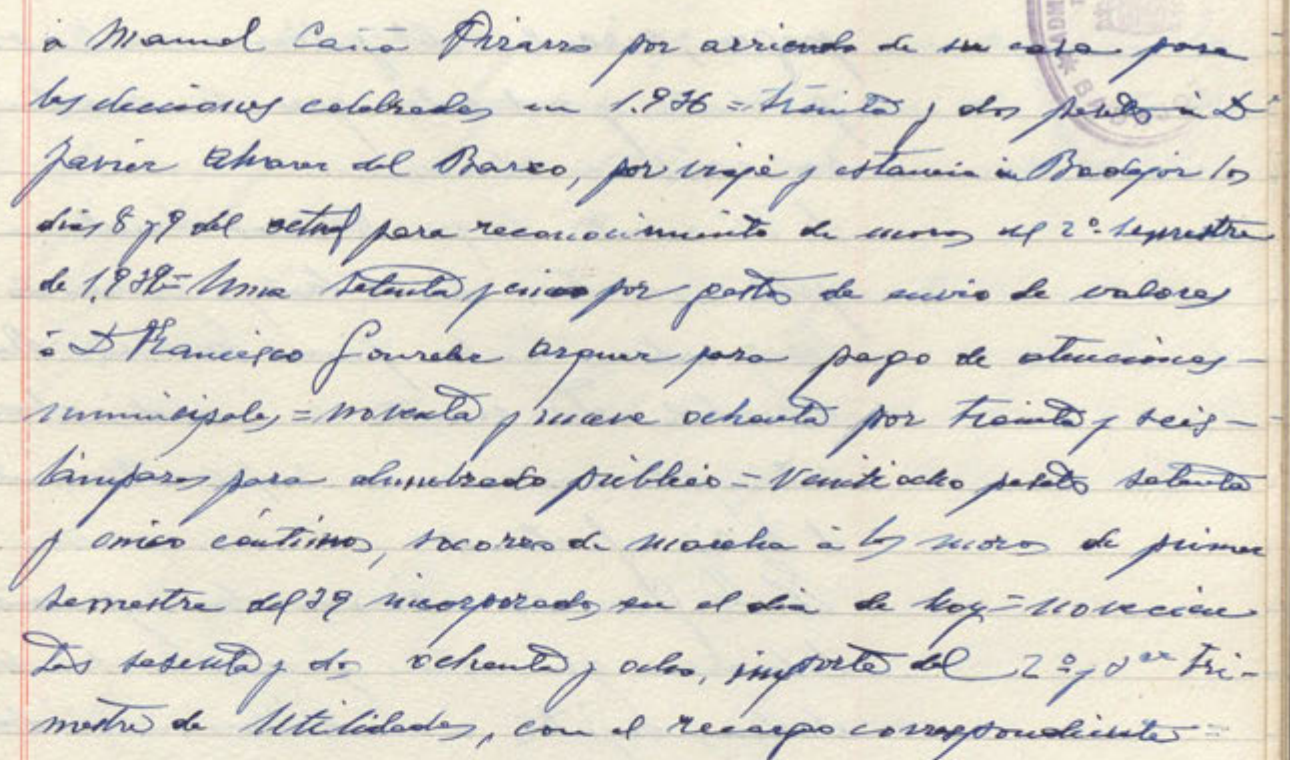 a Manuel Caña Pizarro por arriendo de su casa para
las elecciones celebradas en 1.936 = treinta y dos pesetas a Dⁿ
Javier Alvarez del Barco, por viaje y estancia en Badajoz los
dias 8 y 9 del actual para reconocimiento de mozos del 2º semestre
de 1,938= Una setenta y cinco por gastos de envio de valores
a D Francisco para pago de atenciones-
municipales = noventa y nueve ochenta por treinta y seis-
lámparas para alumbrado público = Veintiocho pesetas setenta
y cinco céntimos, socorros de marcha a los mozos de primer
semestre del 39 incorporados en el dia de hoy = novecien
tas sesenta y dos ochenta y ocho, importe del 2º y 3er tri-
mestre de Utilidades, con el recargo correspondiente =
ADM
B